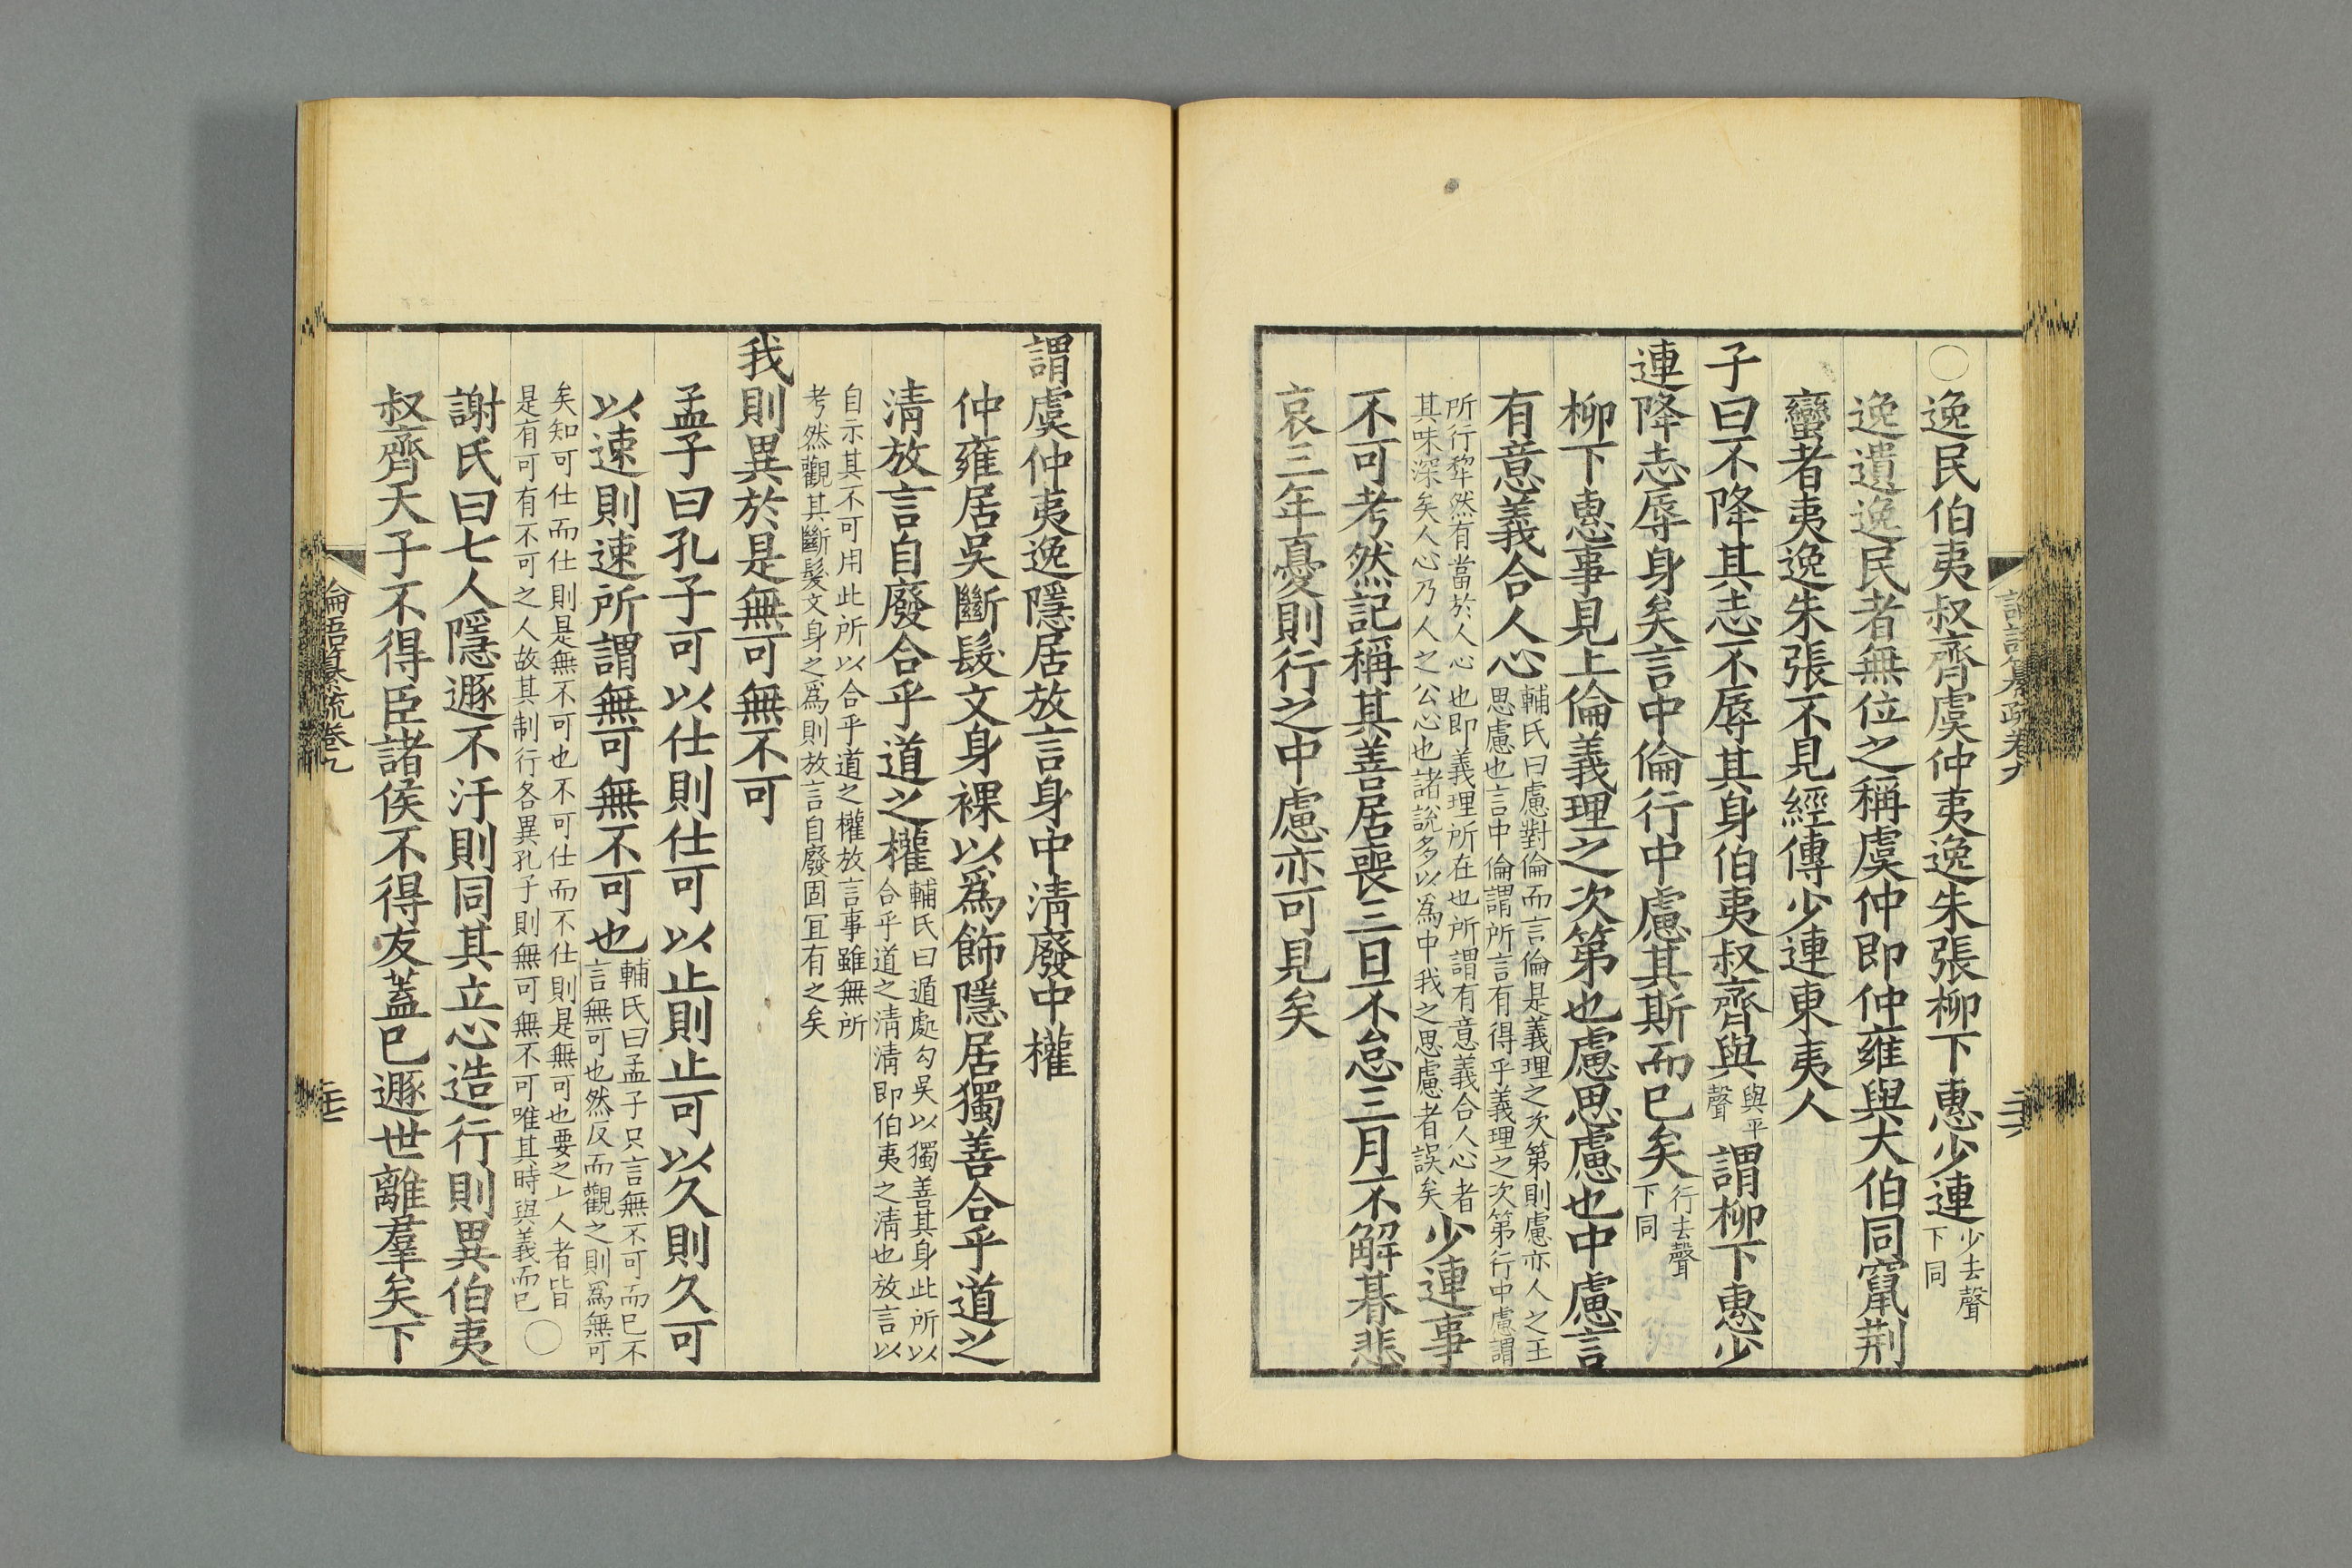 ○逸民伯夷叔齊虞仲夷逸朱張柳下惠少連少去聲下同
逸遺逸民者無位之稱虞仲即仲雍與大伯同竄荆
蠻者夷逸朱張不見經傳少連東夷人
子曰不降其志不辱其身伯夷叔齊與與平聲謂柳下惠少
連降志辱身矣言中倫行中慮其斯而已矣行去聲下同
柳下惠事見上倫義理之次第也慮思慮也中慮言
有意義合人心輔氏曰慮對倫而言倫是義理之次第則慮亦人之王
思慮也言中倫謂所言有得乎義理之次第行中慮謂
所行犂然有當於人心也即義理所在也所謂有意義合人心者
其味深矣人心乃人之公心也諸説多以爲中我之思慮者誤矣少連事
不可考然記稱其善居喪三日不怠三月不解朞悲
哀三年憂則行之中慮亦可見矣
謂虞仲夷逸隱居放言身中清廢中權
仲雍居吳斷髮文身裸以爲飾隱居獨善合乎道之
清放言自廢合乎道之權輔氏曰遁處勾吳以獨善其身此所以
合乎道之清清即伯夷之清也放言以
自示其不可用此所以合乎道之權放言事雖無所
考然觀其斷髮文身之爲則放言自廢固宜有之矣
我則異於是無可無不可
孟子曰孔子可以仕則仕可以止則止可以久則久可
以速則速所謂無可無不可也輔氏曰孟子只言無不可而已不
言無可也然反而觀之則爲無可
矣知可仕而仕則是無不可也不可仕而不仕則是無可也要之七人者皆
是有可有不可之人故其制行各異孔子則無可無不可唯其時與義而已○
謝氏曰七人隱遯不汙則同其立心造行則異伯夷
叔齊天子不得臣諸侯不得友蓋已遯世離羣矣下
論語纂疏卷九